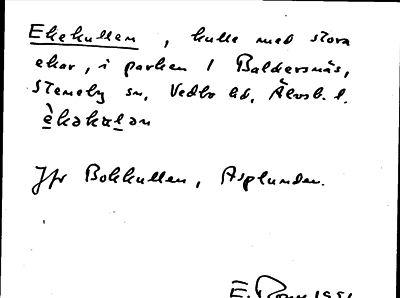 Ekekullen, kulle med stora
ekar, i parken i Baldersnäs,
Steneby sn, Vedbo hd, Älvsb. l.
è̱kəkɐḻən
Jfr Bokkullen, Asplunden.
E. 1951